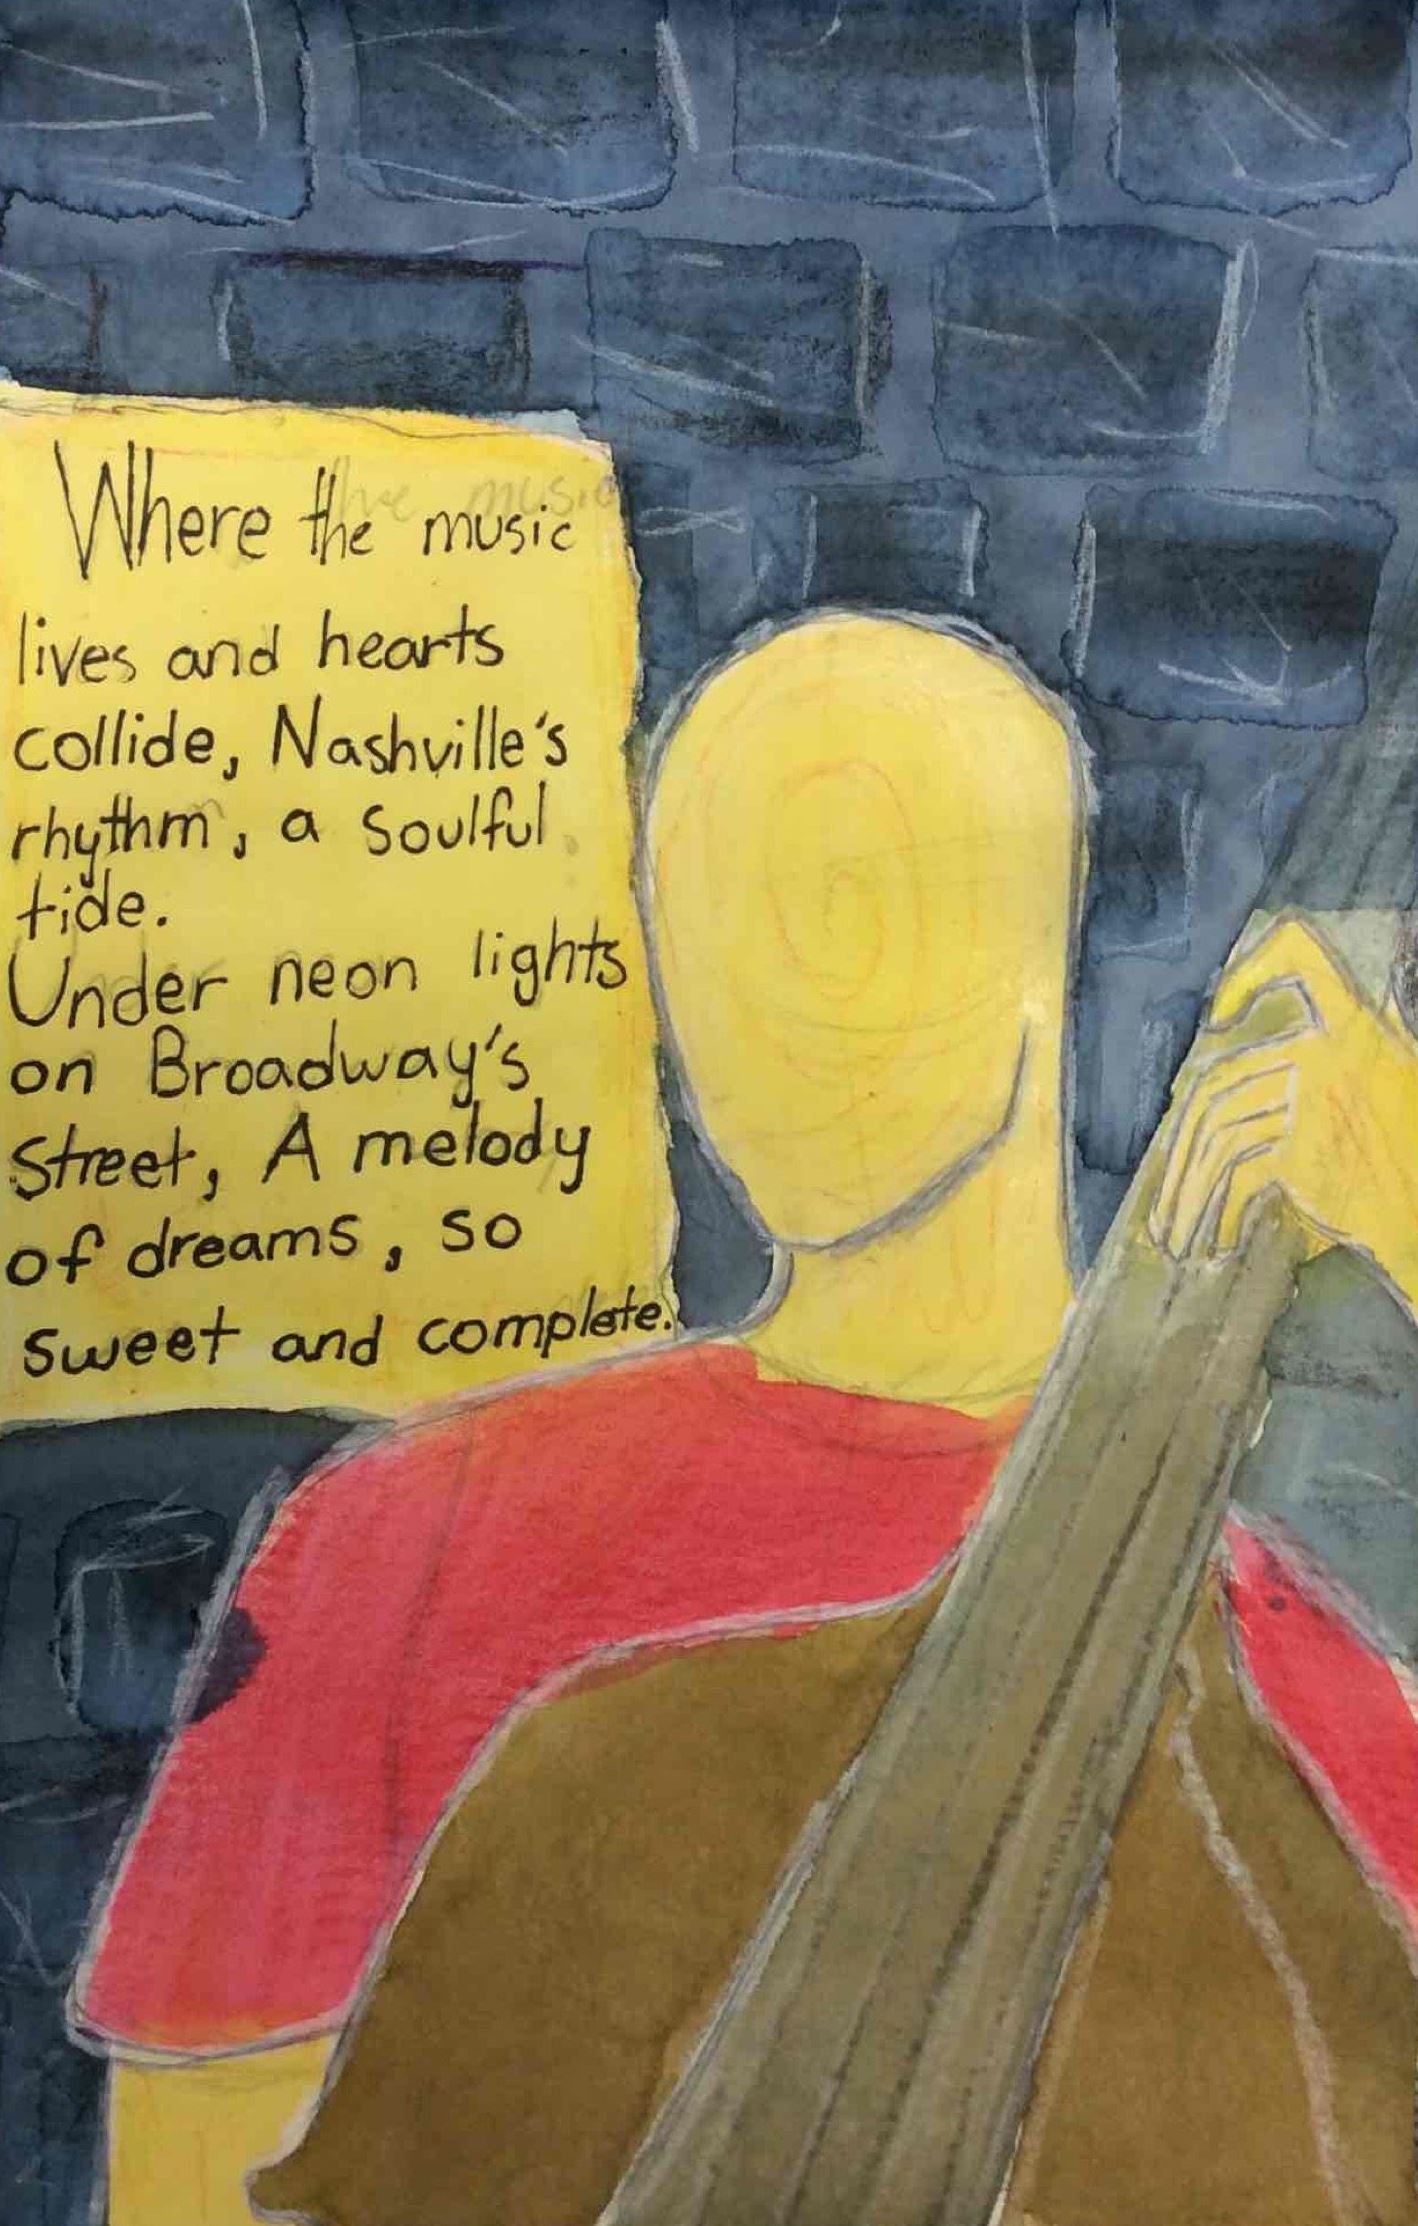 Where the music
lives and hearts
collide, Nashville's
rhythm, a soulful
tide.
Under neon lights
on Broadway's
Street, A melody
of dreams, so
sweet and complete.